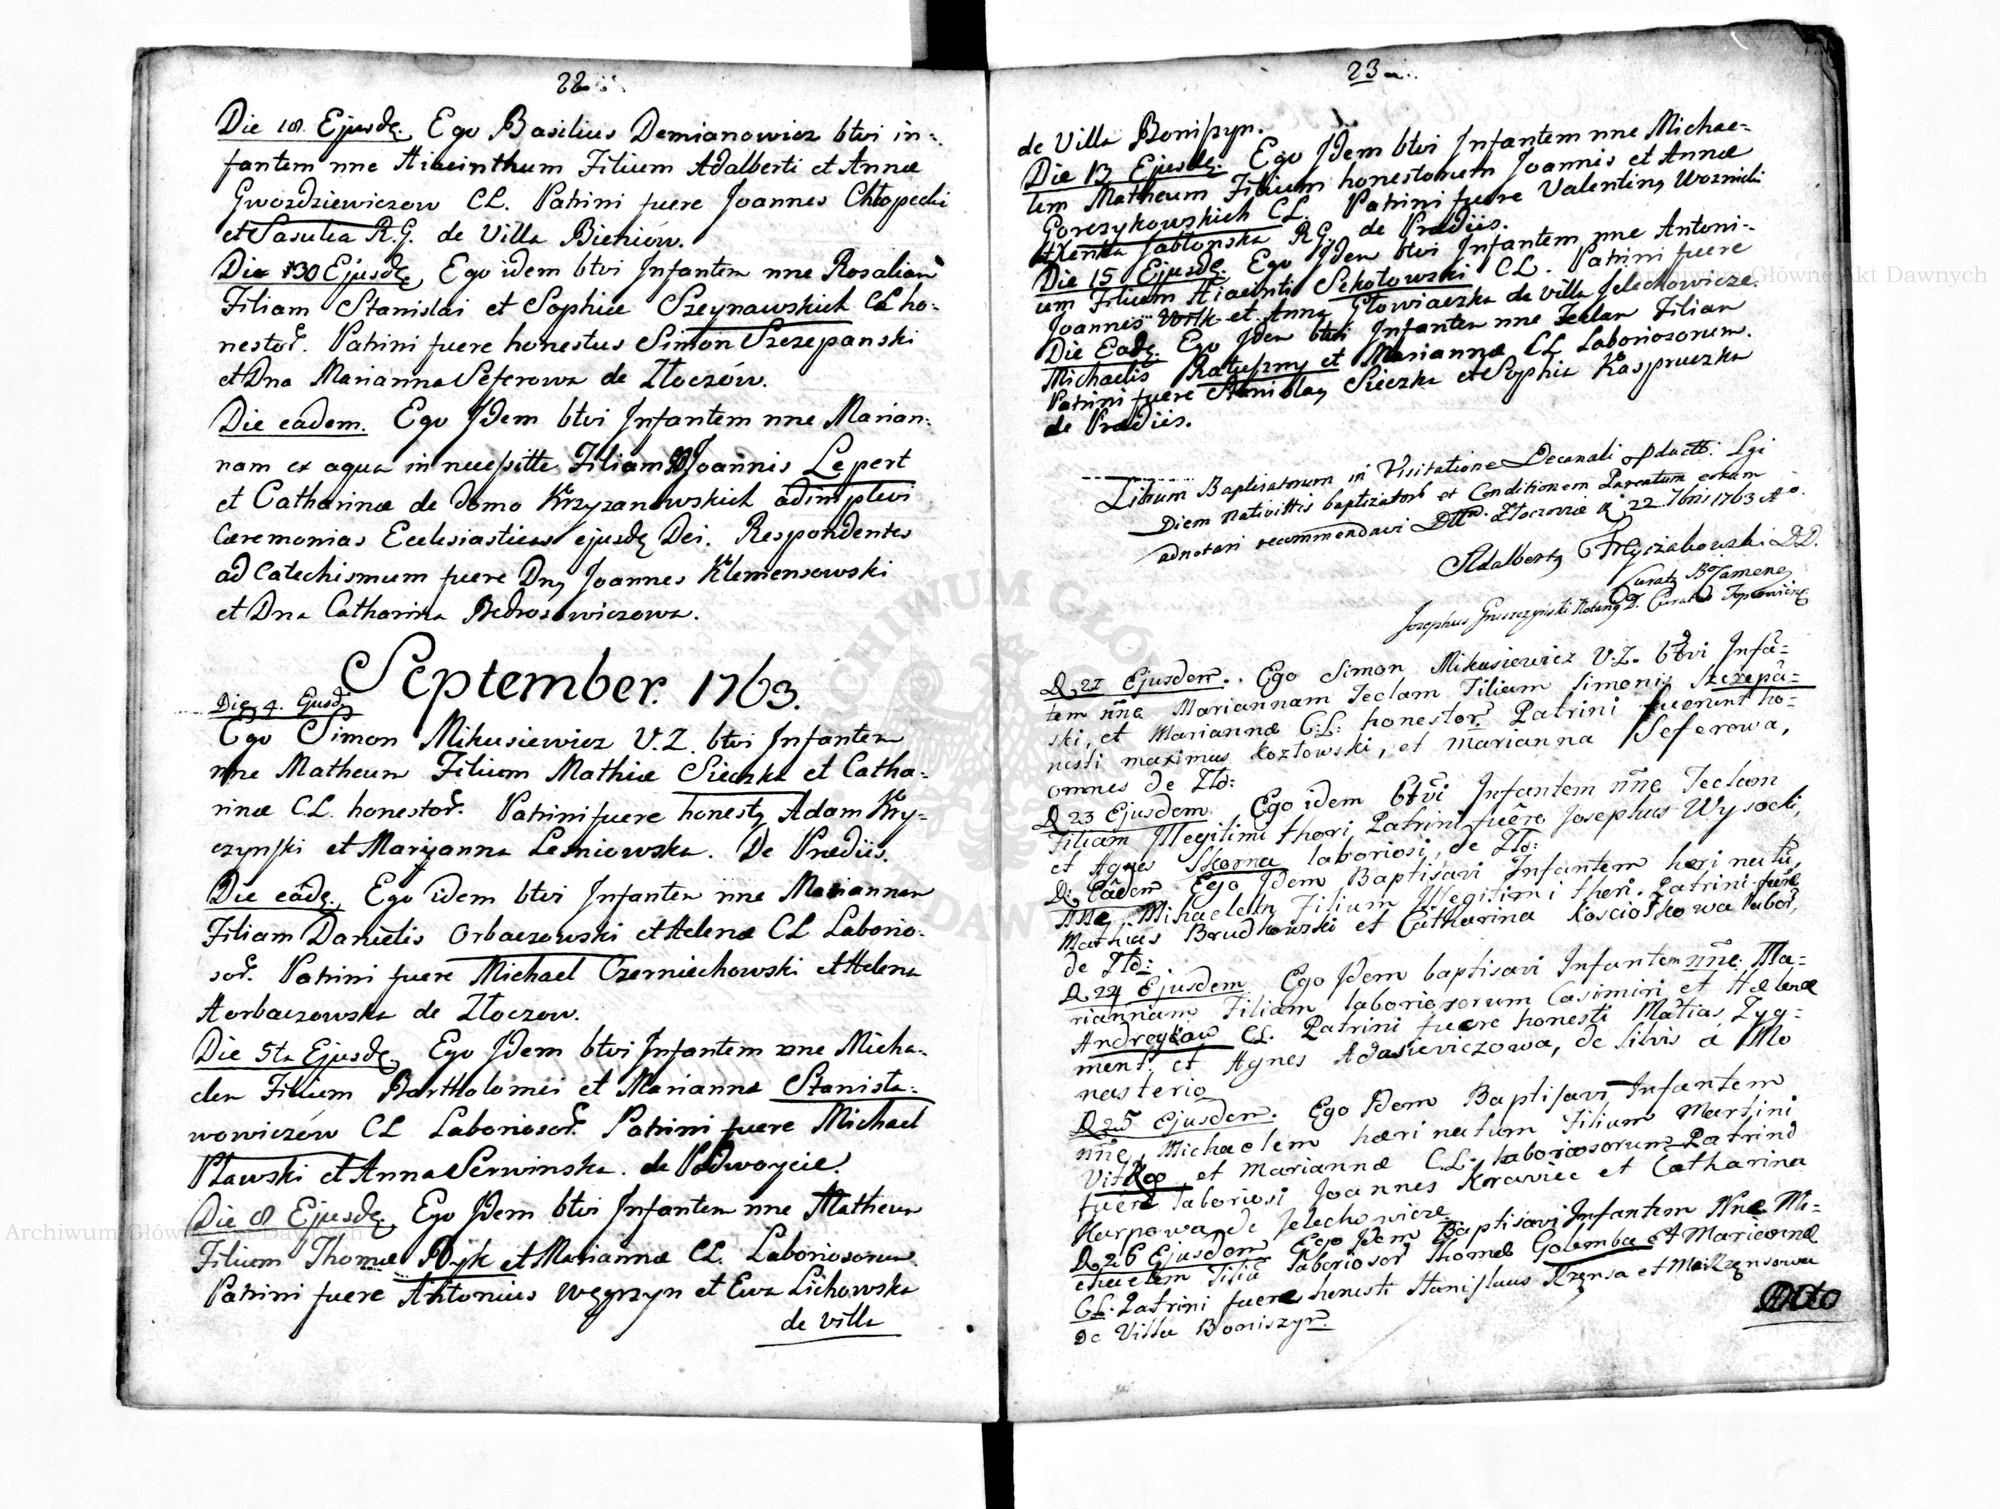 22
Die 18. Ejusdę. Ego Basilius Demianowicz btvi in-
fantem nne Hiacinthum Filium Adalberti et Annæ
Gwozdziewiczow CL. Patrini fuere Joannes Chłopecki
et Sasulea R.G. de Villa Bieniów.
Die 30 Ejusdę Ego idem btvi Infantem nne Rosaliam
Filiam Stanislai et Sophiæ Szeynawskich CL ho-
nestor. Patrini fuere honestus Simon Szczepanski
et Dna Marianna Seferowa de Złoczów.
Die eadem. Ego Jdem btvi Infantem nne Marian-
nam ex aqua in necessitte Filiam Joannis Lepert
et Catharinæ de domo Krzyzanowskich adimplevi
Cæremonias Ecclesiasticas ejusdę Dei. Respondentes
ad Catechismum fuere Dnꝰ Joannes Klemensowski
et Dna Catharina Bedrosowiczowa.
September. 1763.
Die 4. Ejusdę
Ego Simon Mikusiewicz V.Z. btvi Infantem
nne Matheum Filium Mathiæ Sieczka et Catha-
rinæ C.L. honestor. Patrini fuere honestꝰ Adam Kry-
czynski et Maryanna Lesniowska. De Prædiis.
Die eâdę. Ego idem btvi Infantem nne Mariannam
Filiam Danielis Orbaczowski et Helenæ CL Laborio-
sor. Patrini fuere Michael Czerniechowski et Helena
Horbaczowska de Złoczow.
Die 5ta Ejusdę Ego Jdem btvi Infantem nne Micha-
elem Filium Bartholomei et Marianna Stanisła-
wowiczów CL Laboriosor. Patrini fuere Michael
Pławski et Anna Serwinska. de Podwoycie.
Die 8 Ejusdę Ego Jdem btvi Infantem nne Matheum
Filium Thomæ Dyk et Mariannæ CL. Laboriosorum.
Patrini fuere Antonius Węgrzyn et Ewa Lichowska
de villa
23
de Villa Boniszyn.
Die 13 Ejusdę. Ego Jdem btvi Infantem nne Michae-
lem Matheum Filium honestorum Joannis et Annæ
Gorczykowskich CL. Patrini fuere Valentinꝰ Woznicki
et Xenka Jabłonska RG. de Prædiis.
Die 15 Ejusdę. Ego Jdem btvi Infantem nne Antoni-
um Filium Hiacinti Sokołowski CL. Patrini fuere
Joannes Wilk et Anna Głowiaczka de villa Jelechowicze.
Die Eadę. Ego Jdem btvi Infantem nne Teclam Filiam
Michaelis Ratuszny et Mariannæ CL Laboriosorum.
Patrini fuere Stanislaꝰ Sieczka et Sophia Kaspruczka
de Prædiis.
Librum Baptisatorum in Visitatione Decanali
Diem Nativittis baptizatorb et Conditionem Parentum eorum
adnotari recommendavi Złoczoviæ d 22 7bris 1763 Ao.
Adalbertꝰ D.D.
Josephus Gruszczynski
D. 21 Ejusdem. Ego Simon Mikusiewicz V.Z. btvi Infa-
tem nne Mariannam Teclam Filiam Simonis Szczepa-
ski, et Mariannæ C:L: honestor. Patrini fuerunt ho-
nesti maximus Kozłowski, et Marianna Seferowa,
omnes de Zło:
D 23 Ejusdem Ego idem btvi Infantem nne Teclam
Filiam Illegitimi thori, Patrini fuere Josephus Wysocki,
et Agnes Skorna laboriosi, de Zło:
D: Eadem Ego Jdem Baptisavi Infantem heri natu,
nne Michaelem Filium Illegitimi thori. Patrini fuere
Mathias Brudkowski et Catharina Kosciołkowa labor,
de Zło:
D. 24 Ejusdem Ego Jdem baptisavi Infantem nne. Ma-
riannam Filiam laboriosorum Casimiri et Helenæ
Andreykow CL. Patrini fuere honesti Matias Zyg-
ment, et Agnes Adasieviczowa, de silvis á Mo
nasterio
D 25 Ejusdem. Ego Jdem Baptisavi Infantem
nne, Michaelem heri natum Filium Martini
Vitkoo, et Mariannæ C.L. laboriosorum Patrini
fuere laboriosi Joannes Krawiec et Catharina
Karpowa, de Jelechowicze
D. 26 Ejusdem Ego Jdem Baptisavi Infantem Nne Mi-
chaelem Filiu Laborioser Thomæ Golemba et Mariannæ
CL. Patrini fuere honesti Stanislaus Krzysa et
de Villa Boniszyn.
Archiwum Główne Akt Dawnych
Archiwum Główne Akt Dawnych
ARCHIWUM GŁÓWNE AKT DAWNYCH